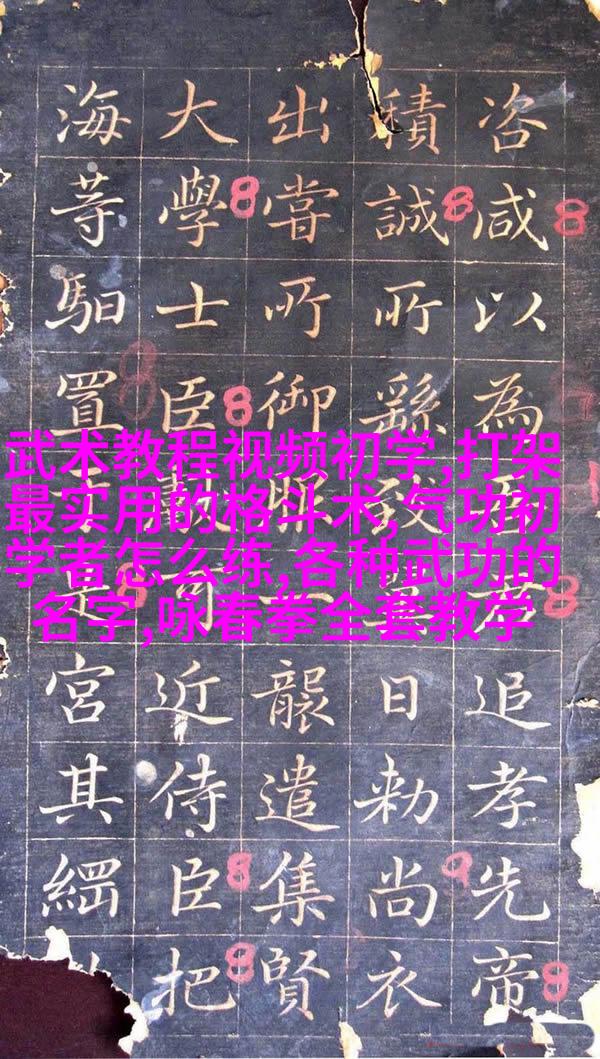 咨咸以為追孝先帝
積誠所繇致日勑尚衣
出嘗所御襲遣集賢
大學士臣近侍臣把
海等馹置宮其綱
武术教程视频初学,打架
最实用的格斗术,气功初
学者怎么练,各种武功的
名字,咏春拳全套教学
8
8
8
8
8
8
8
8
9
8
9